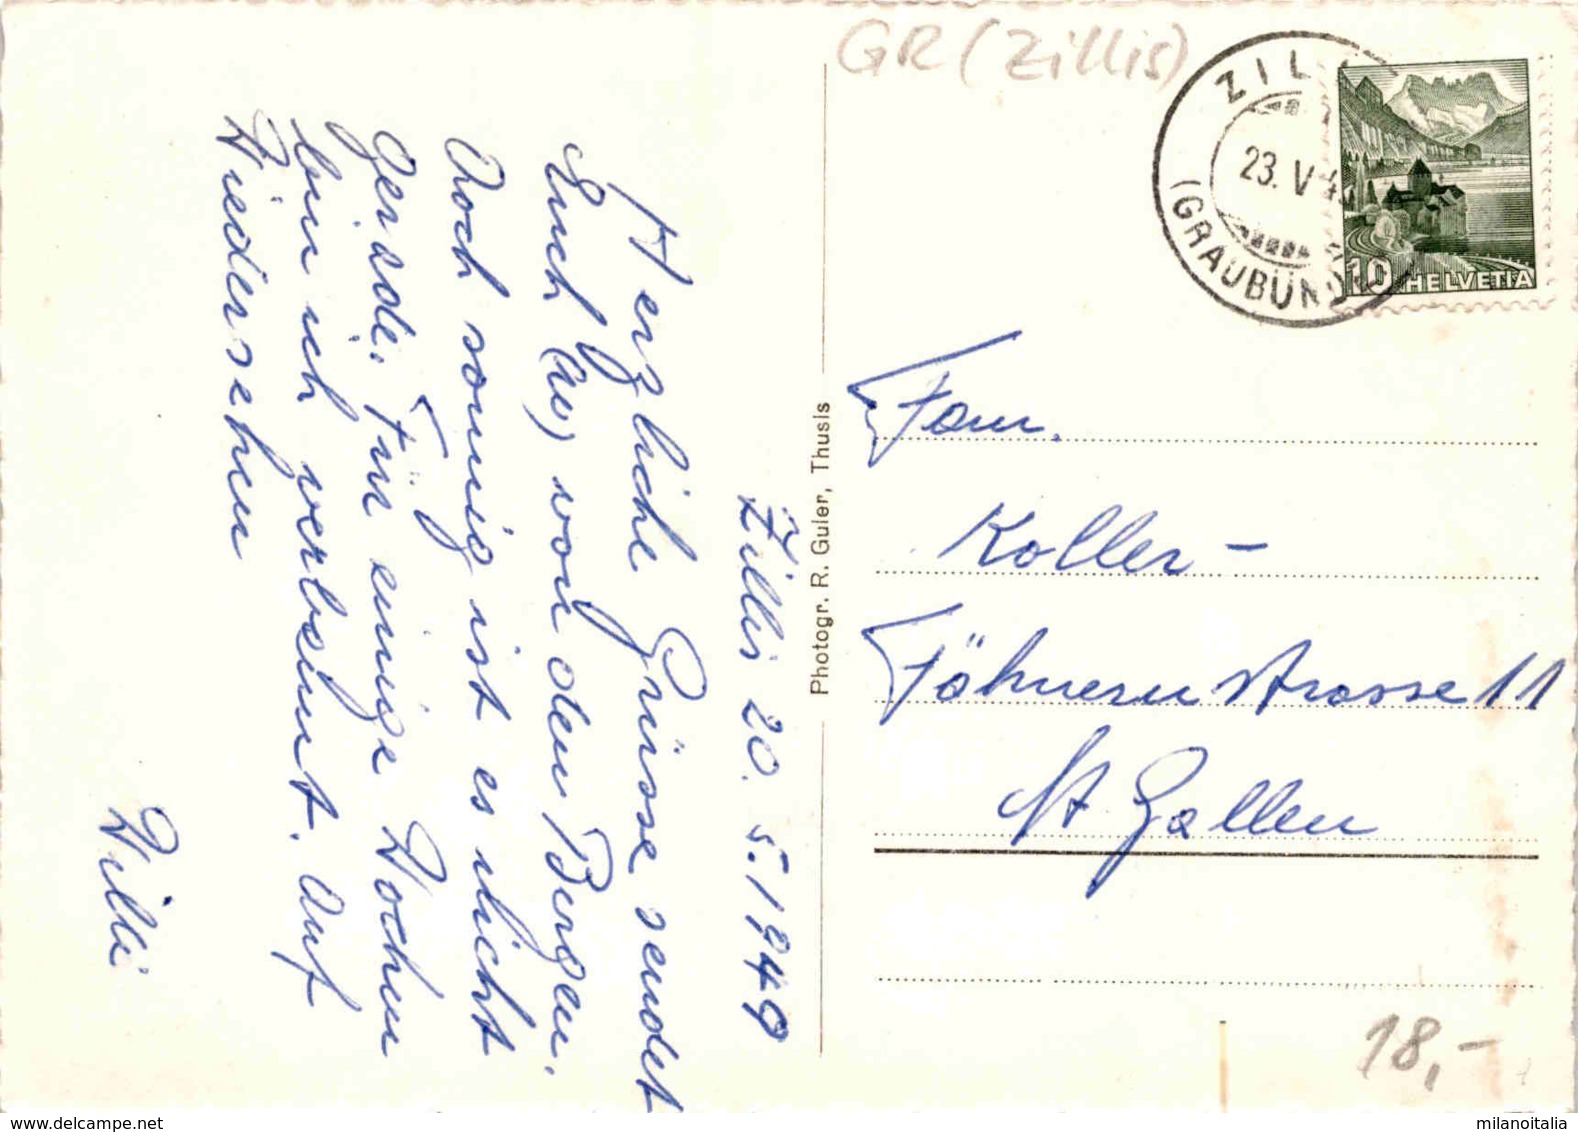 GR (Zillis)
ZILL
23. V 4
(GRAUBÜND
10 HELVETIA
Zillis 20. 5. 1949
Herzliche Grüsse sendet
Euch
von den Bergen.
Doch sonnig ist es nicht
gerade. Für einige Wochen
bin ich verbannt. Auf
Wiedersehen
Willi
Photogr. R. Guler, Thusis
Fam.
Koller-
strasse 11
St Gallen
18,-
milanoitalia